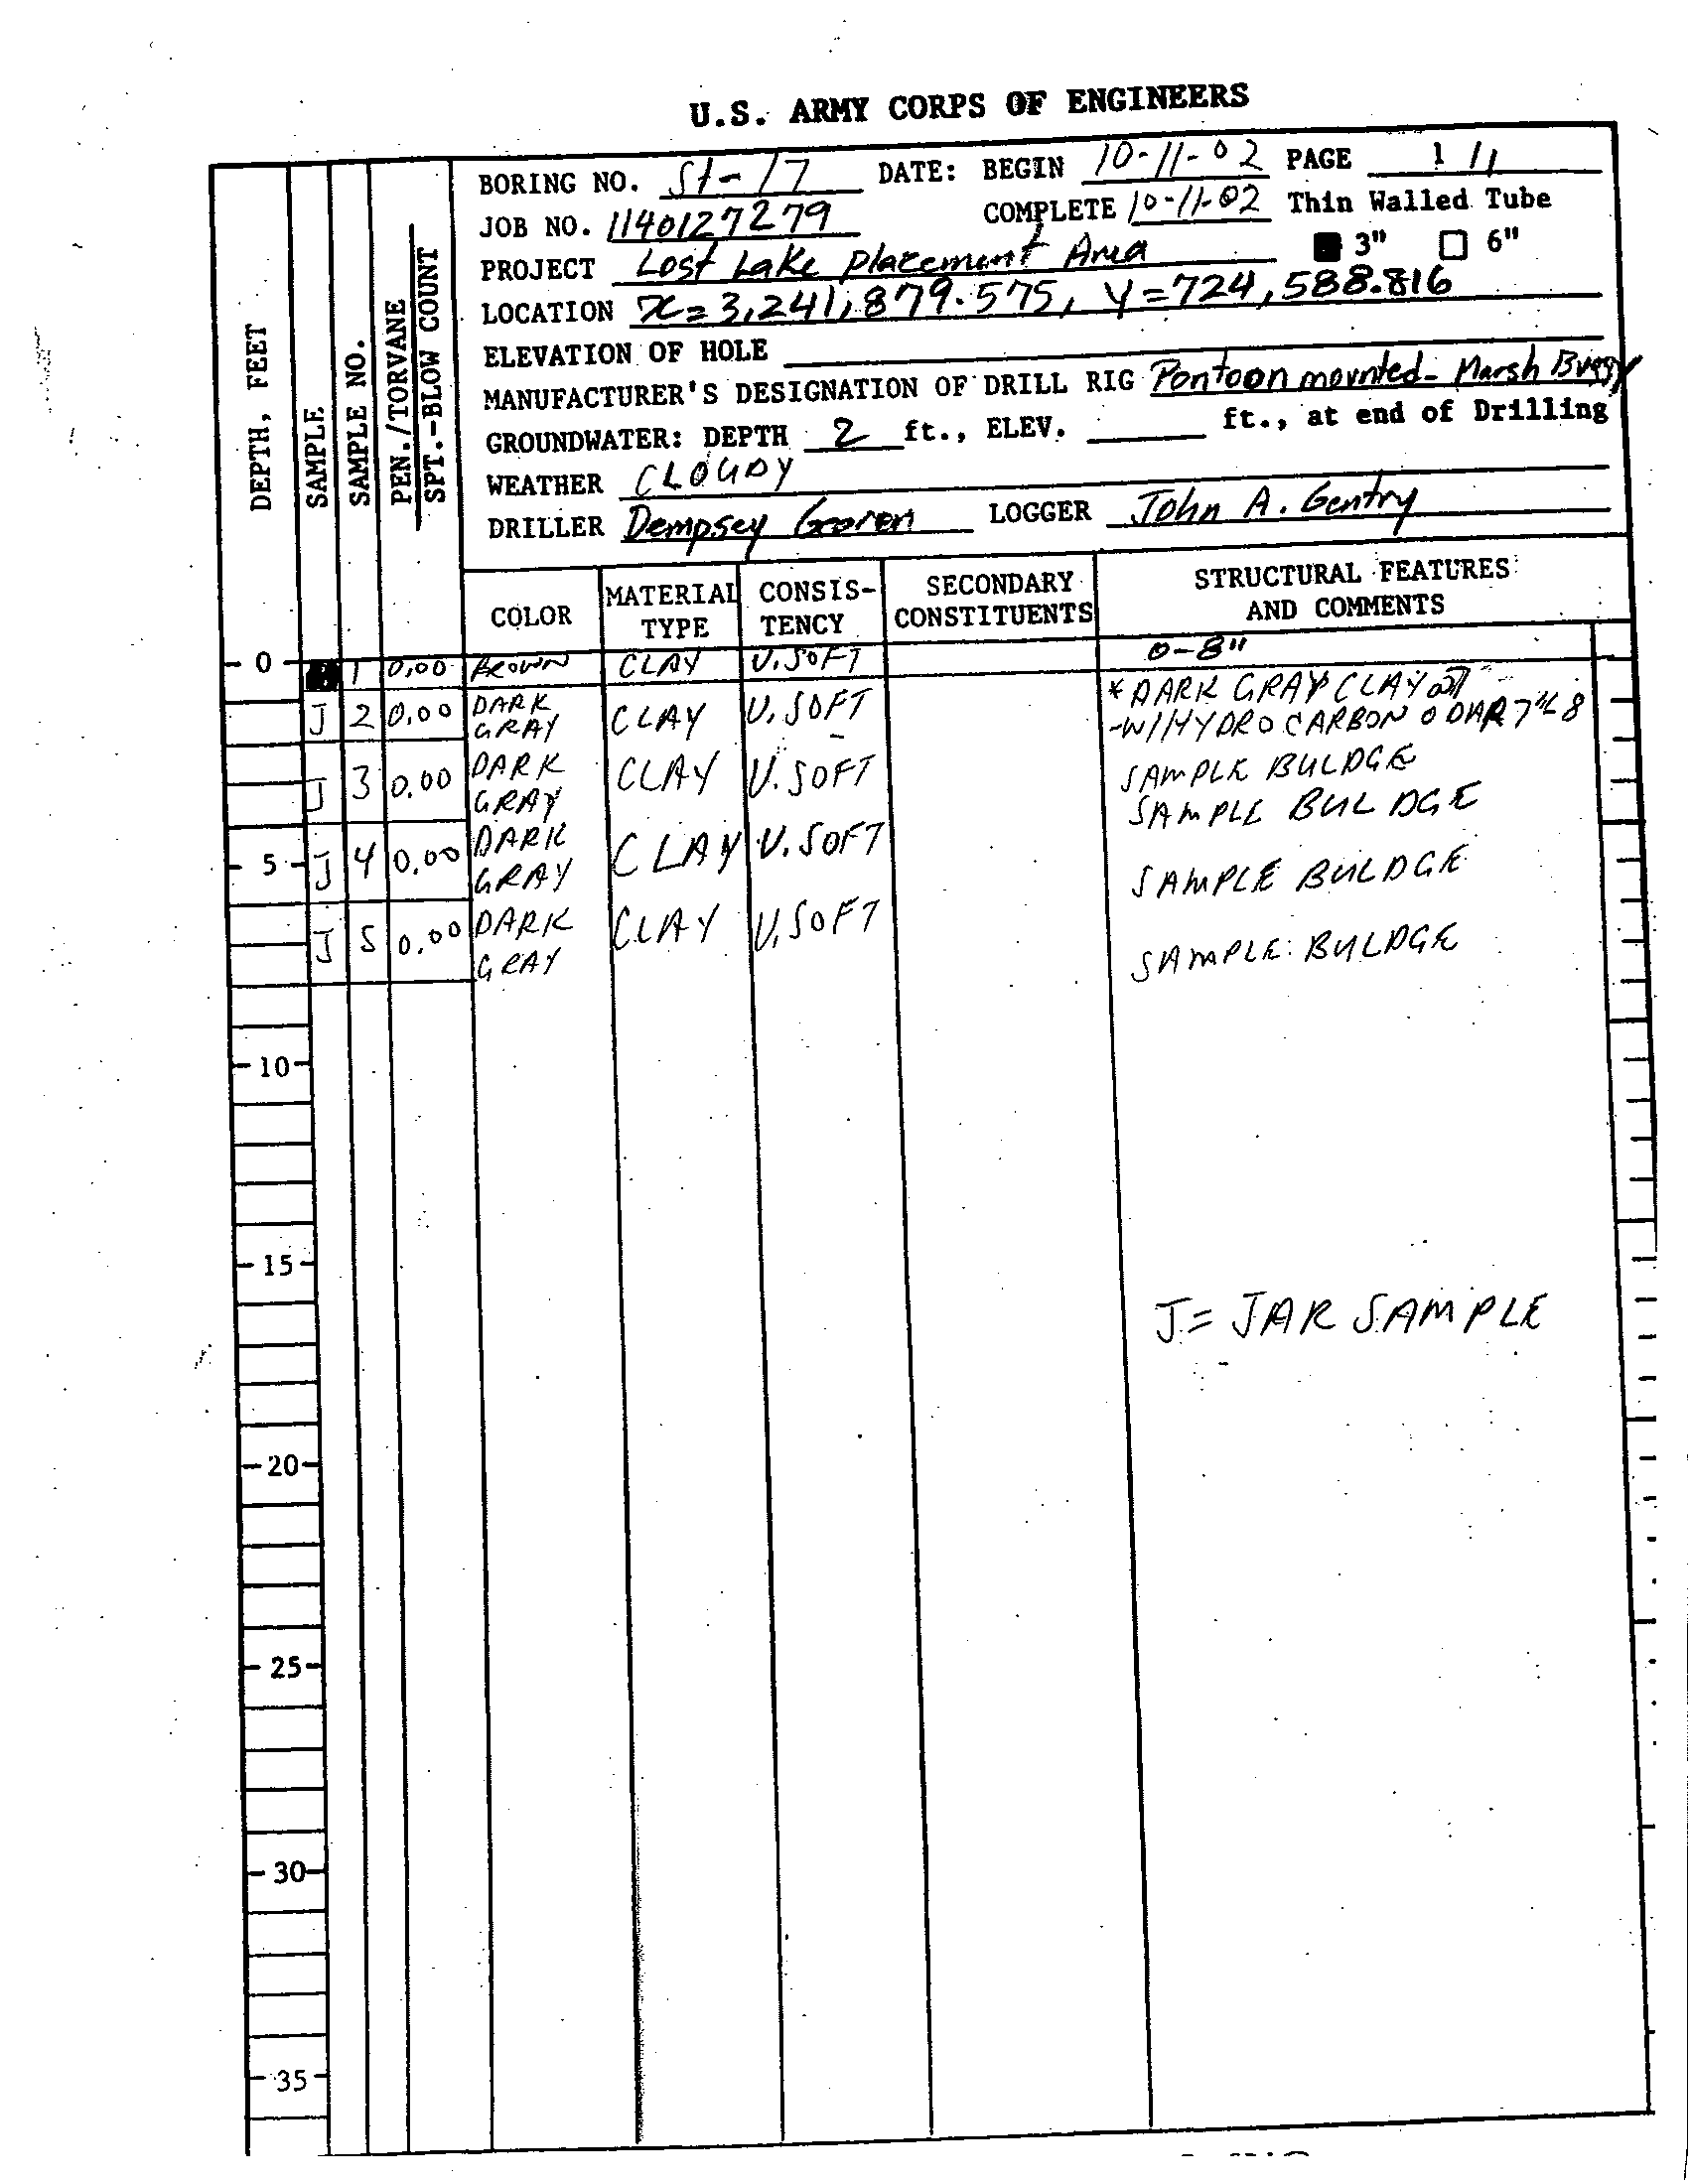 U.S. ARMY CORPS OF ENGINEERS
BORING NO. St-17 DATE: BEGIN 10-11-02 PAGE 1/1
JOB NO. 1140127279 COMPLETE 10-11-02 Thin Walled Tube
PROJECT Lost Lake Placement Area 3" 6"
LOCATION X=3,241,879.575, Y=724,588.816
ELEVATION OF HOLE
MANUFACTURER'S DESIGNATION OF DRILL RIG Pontoon mounted- Marsh Buggy
GROUNDWATER: DEPTH 2 ft., ELEV. ft., at end of Drilling
WEATHER CLOUDY
DRILLER Dempsey LOGGER John A. Gentry
DEPTH, FEET
SAMPLE
SAMPLE NO.
PEN./TORVANE
SPT.-BLOW COUNT
COLOR MATERIAL TYPE CONSIS-TENCY SECONDARY CONSTITUENTS STRUCTURAL FEATURES AND COMMENTS
0 1 0.00 BROWN CLAY V.SOFT 0-8"
J 2 0.00 DARK GRAY CLAY V.SOFT * DARK GRAY CLAY
-W/HYDROCARBON
J 3 0.00 DARK GRAY CLAY V.SOFT SAMPLE BULDGE
SAMPLE BULDGE
5 J 4 0.00 DARK GRAY CLAY V.SOFT SAMPLE BULDGE
J 5 0.00 DARK GRAY CLAY V.SOFT SAMPLE BULDGE
10
15
J= JAR SAMPLE
20
25
30
35